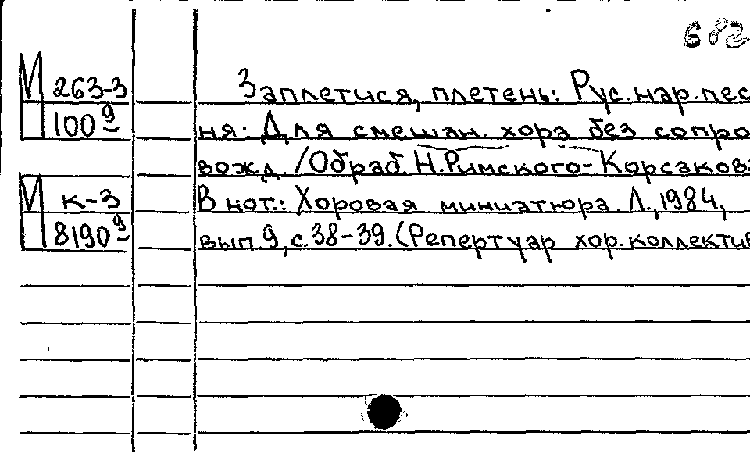 682
М 263-3
100 9
Заплетися, плетень: Рус. нар. пес
ня: Для смешан. хора без сопро
вожд. /Обраб. Н. Римского-Корсаков
М к-3
8190 9
В нот.: Хоровая миниатюра. Л., 1984,
вып. 9, с. 38-39. (Репертуар хор. коллектив